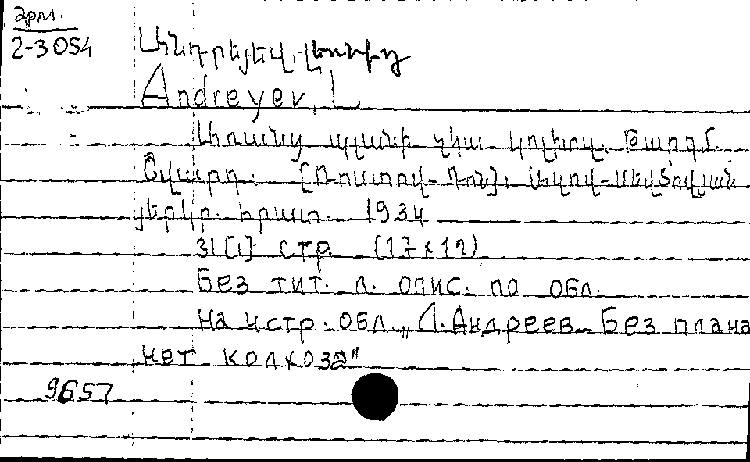 2-3054
Անդրեյեվ, Լեոնիդ
Andreyev, L
Առանց պլանի չկա կոլխոզ. Թարգմ.
[Ռոստով-Դոն]. Ազով-Սեվծովյան
յերկր. հրատ. 1934
31[1] стр. (17x12)
Без тит. л. опис. по обл.
На 4 стр. обл. „Л. Андреев. Без плана
нет колхоза"
9657